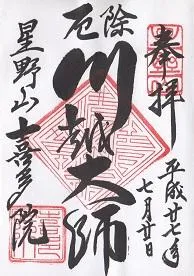 奉拝
平成廿七年
七月廿日
厄除
川越大師
星野山
喜多院